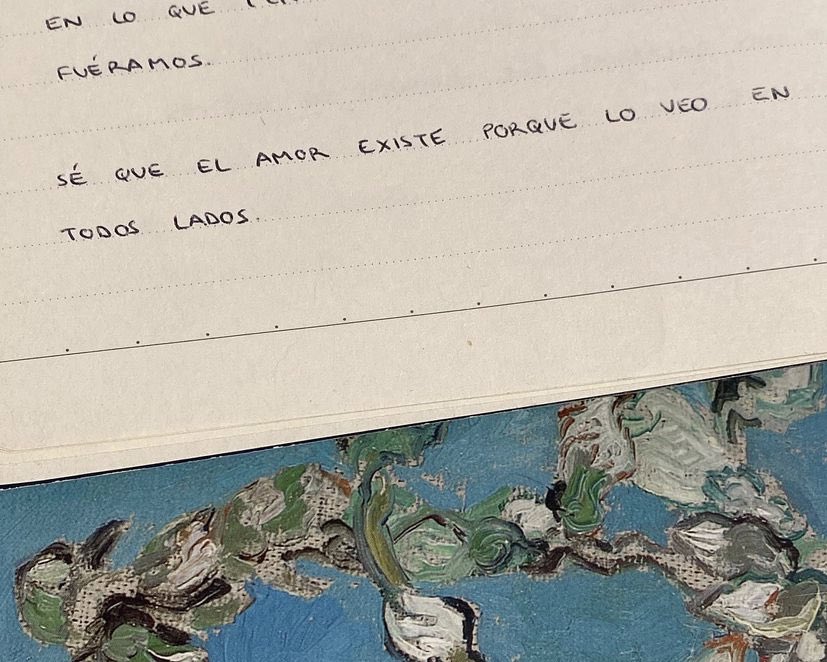 EN LO QUE
FUÉRAMOS.
SÉ QUE EL AMOR EXISTE PORQUE LO VEO EN
TODOS LADOS.